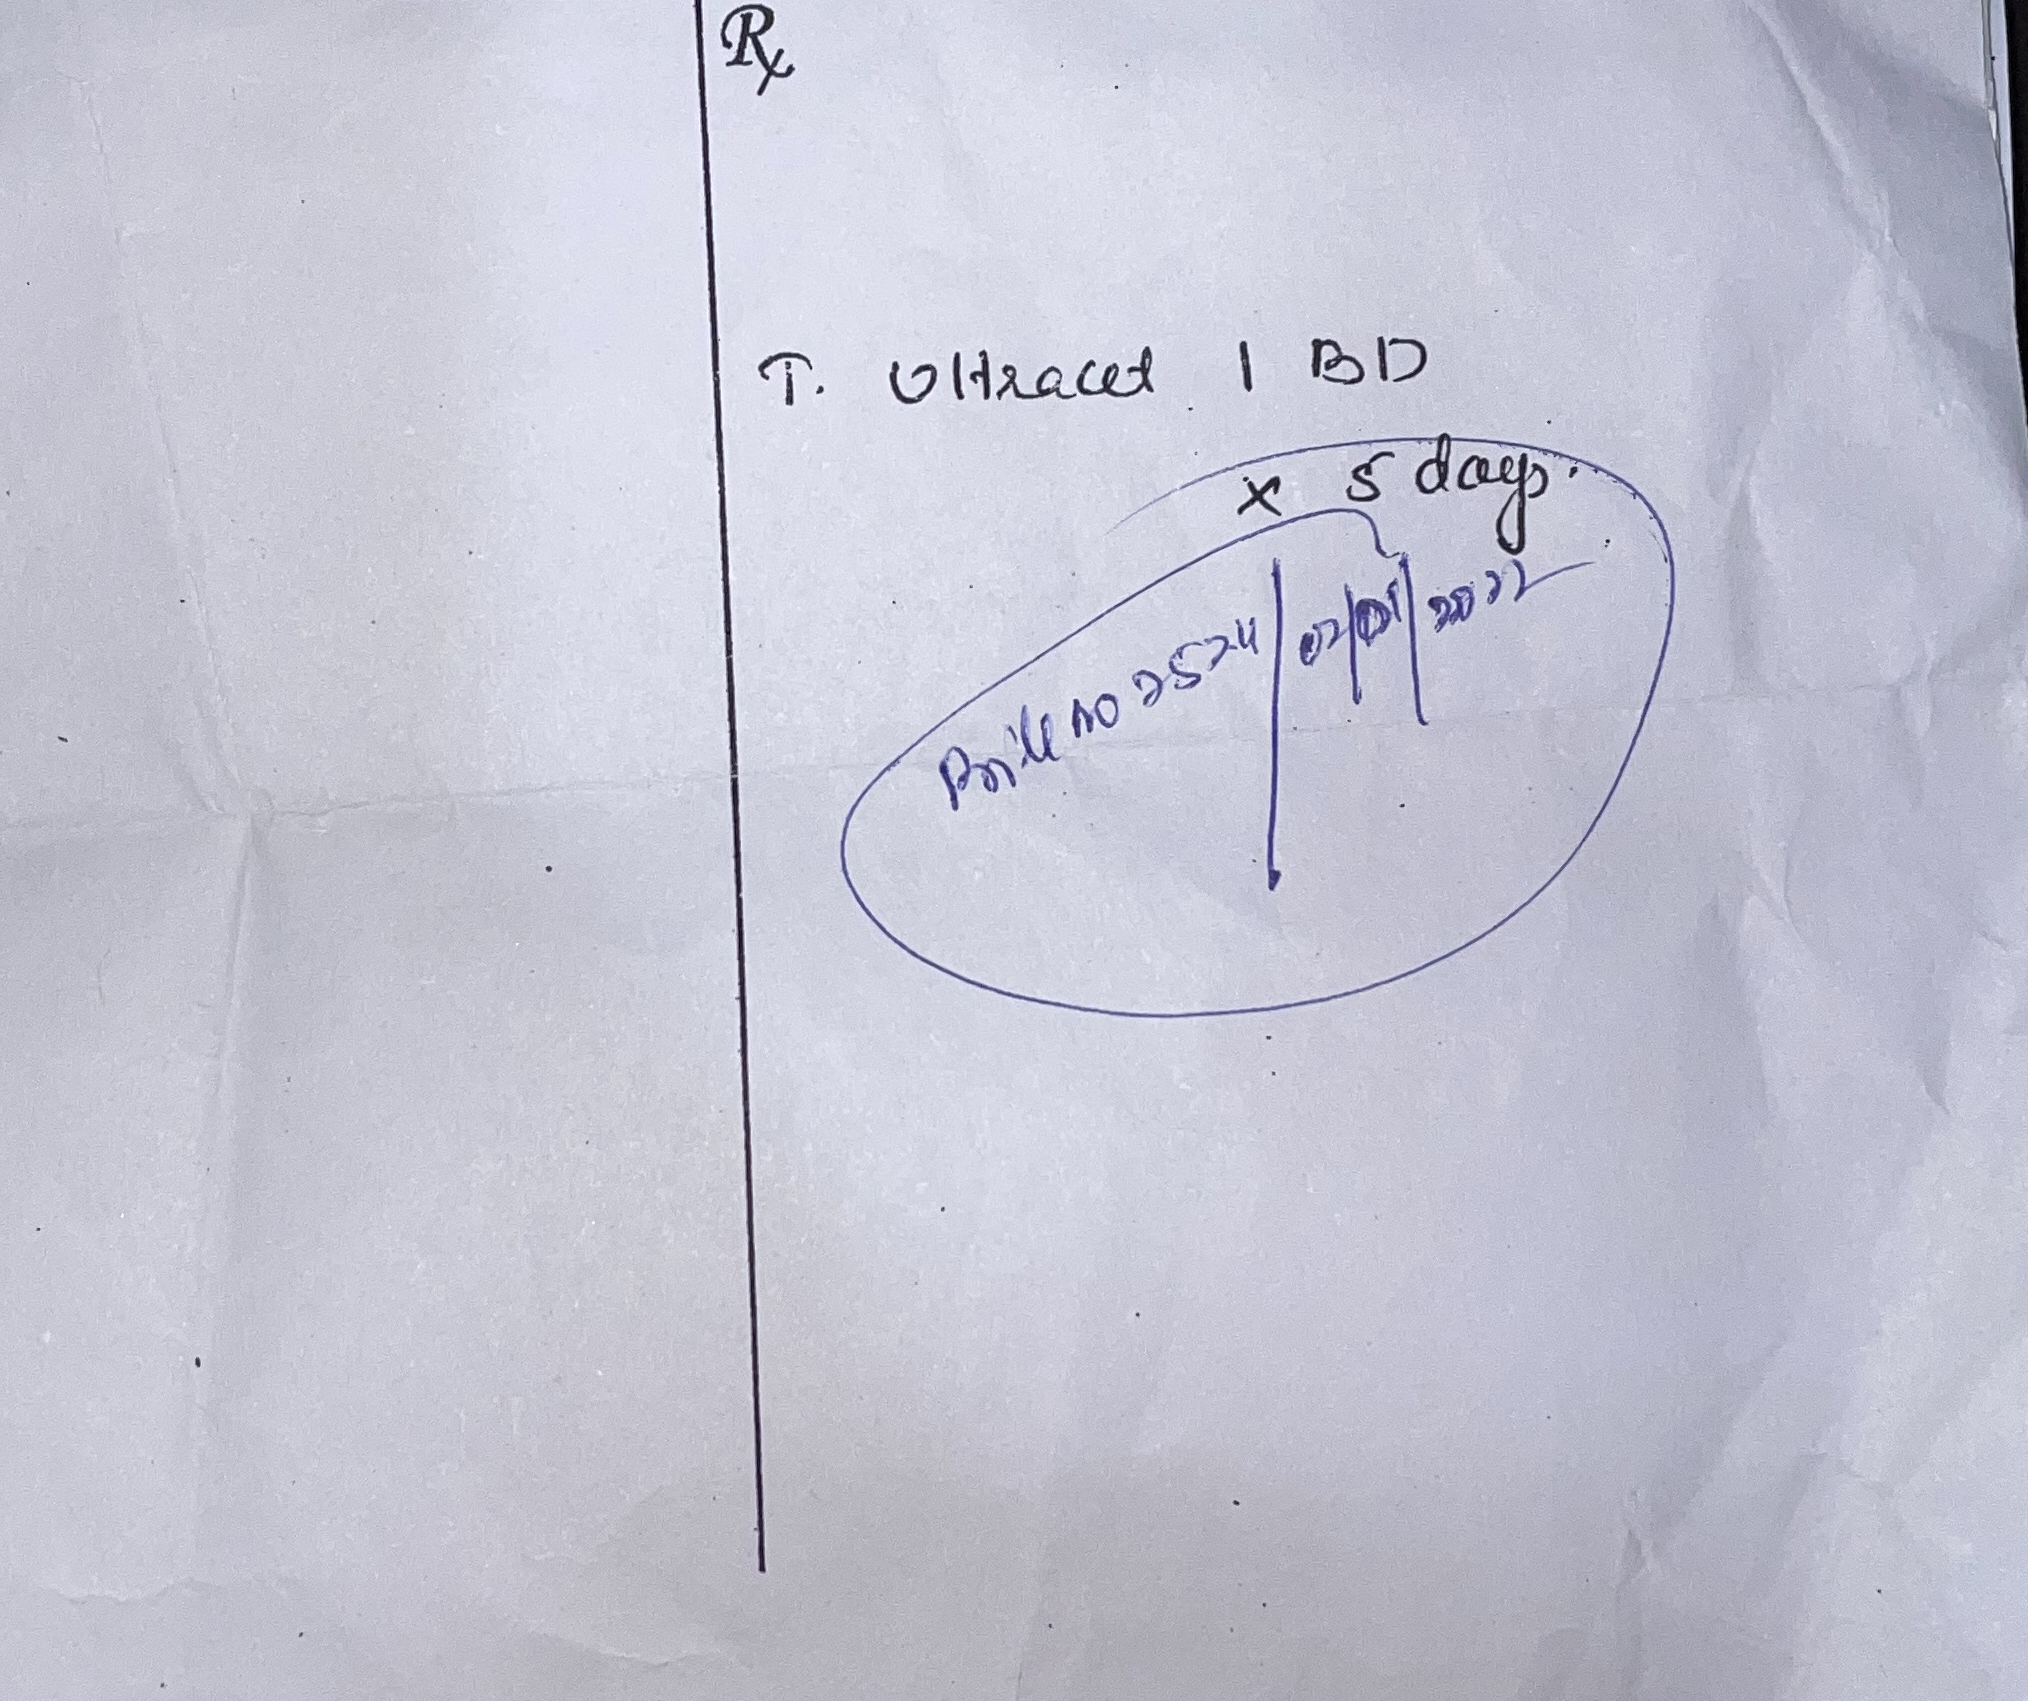 Rx
T. Ultracet 1 BD
x 5 days.
Bill no 25724 / 02/05/2022